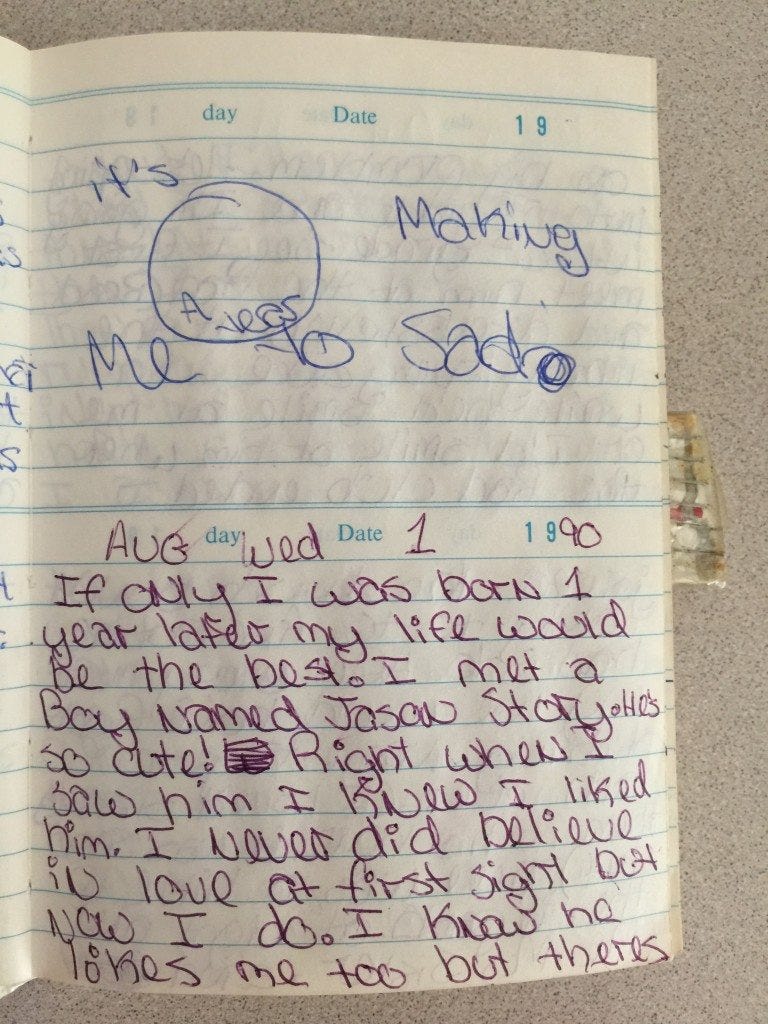 day Date 19
it's Making
A
Me to Sad.
AUG day Wed Date 1 1990
If only I was born 1
year later my life would
be the best. I met a
Boy named Jason Story. He's
so cute! Right when I
saw him I knew I liked
him. I never did believe
in love at first sight but
now I do. I know he
likes me too but theres